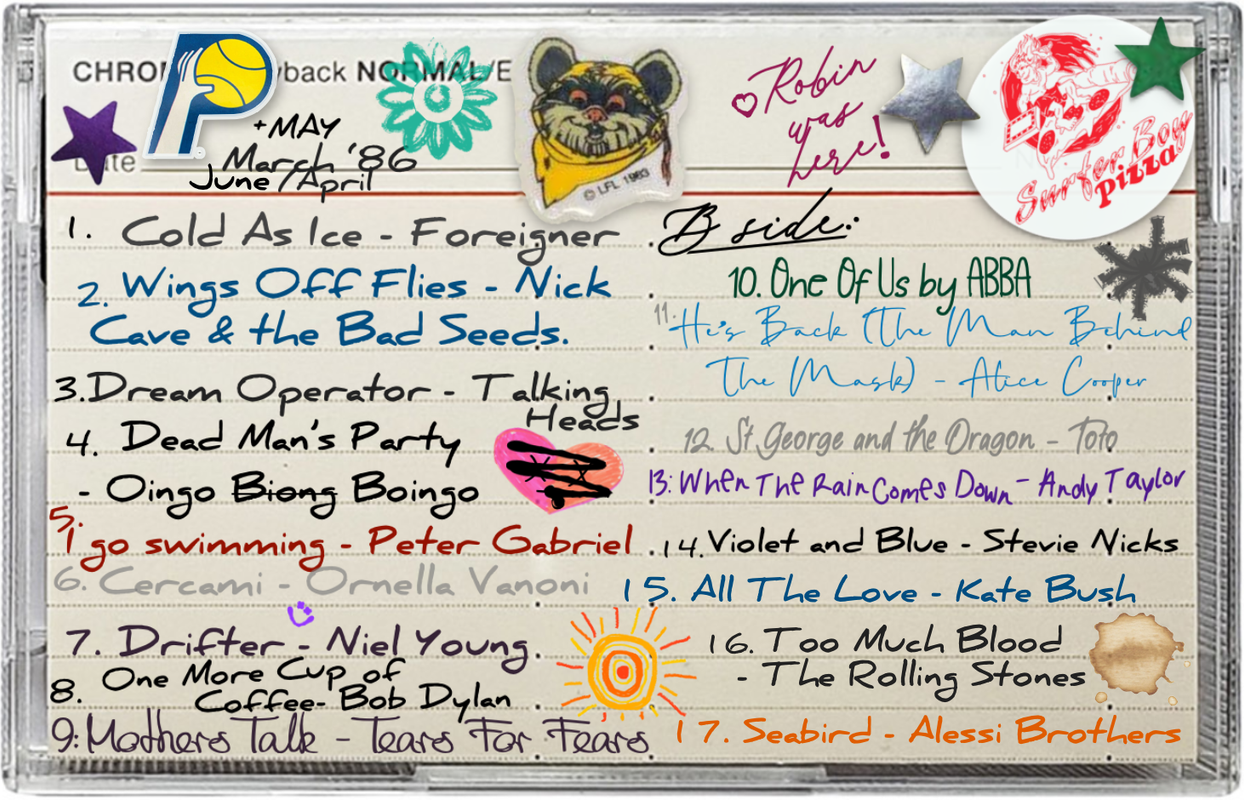 CHRO yback NORMAL/E
+MAY
March '86
June/April
ate
© LFL 1983
Robin
was
here!
Surfer Boy
Pizza
1. Cold As Ice - Foreigner
2. Wings Off Flies - Nick
Cave & the Bad Seeds.
3. Dream Operator - Talking
Heads
4. Dead Man's Party
- Oingo Biong Boingo
5. I go swimming - Peter Gabriel
6. Cercami - Ornella Vanoni
7. Drifter - Niel Young
8. One More Cup of
Coffee- Bob Dylan
9: Mothers Talk - Tears For Fears
B side:
10. One Of Us by ABBA
11. He's Back (The Man Behind
The Mask) - Alice Cooper
12. St. George and the Dragon - Toto
13: When The Rain Comes Down - Andy Taylor
14. Violet and Blue - Stevie Nicks
15. All The Love - Kate Bush
16. Too Much Blood
- The Rolling Stones
17. Seabird - Alessi Brothers